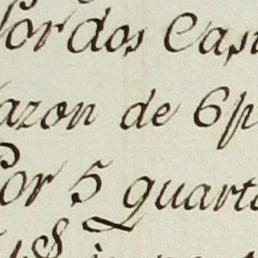 Por dos Cas
azon de 6 p
Por 5 quart